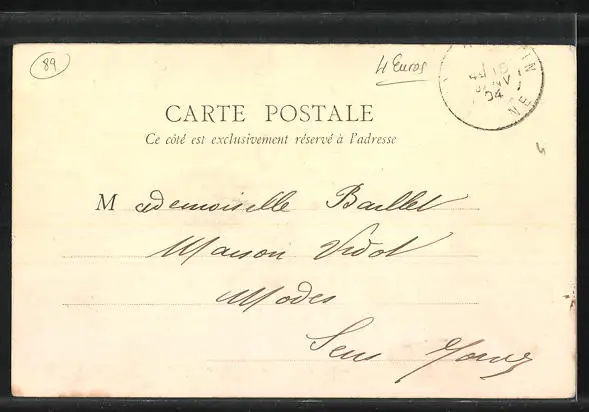 89
4 Euros
4E 18
JANV
04
CARTE POSTALE
Ce côté est exclusivement réservé à l'adresse
Mademoiselle Baillet
Maison Vidot
Modes
Sens Yonne